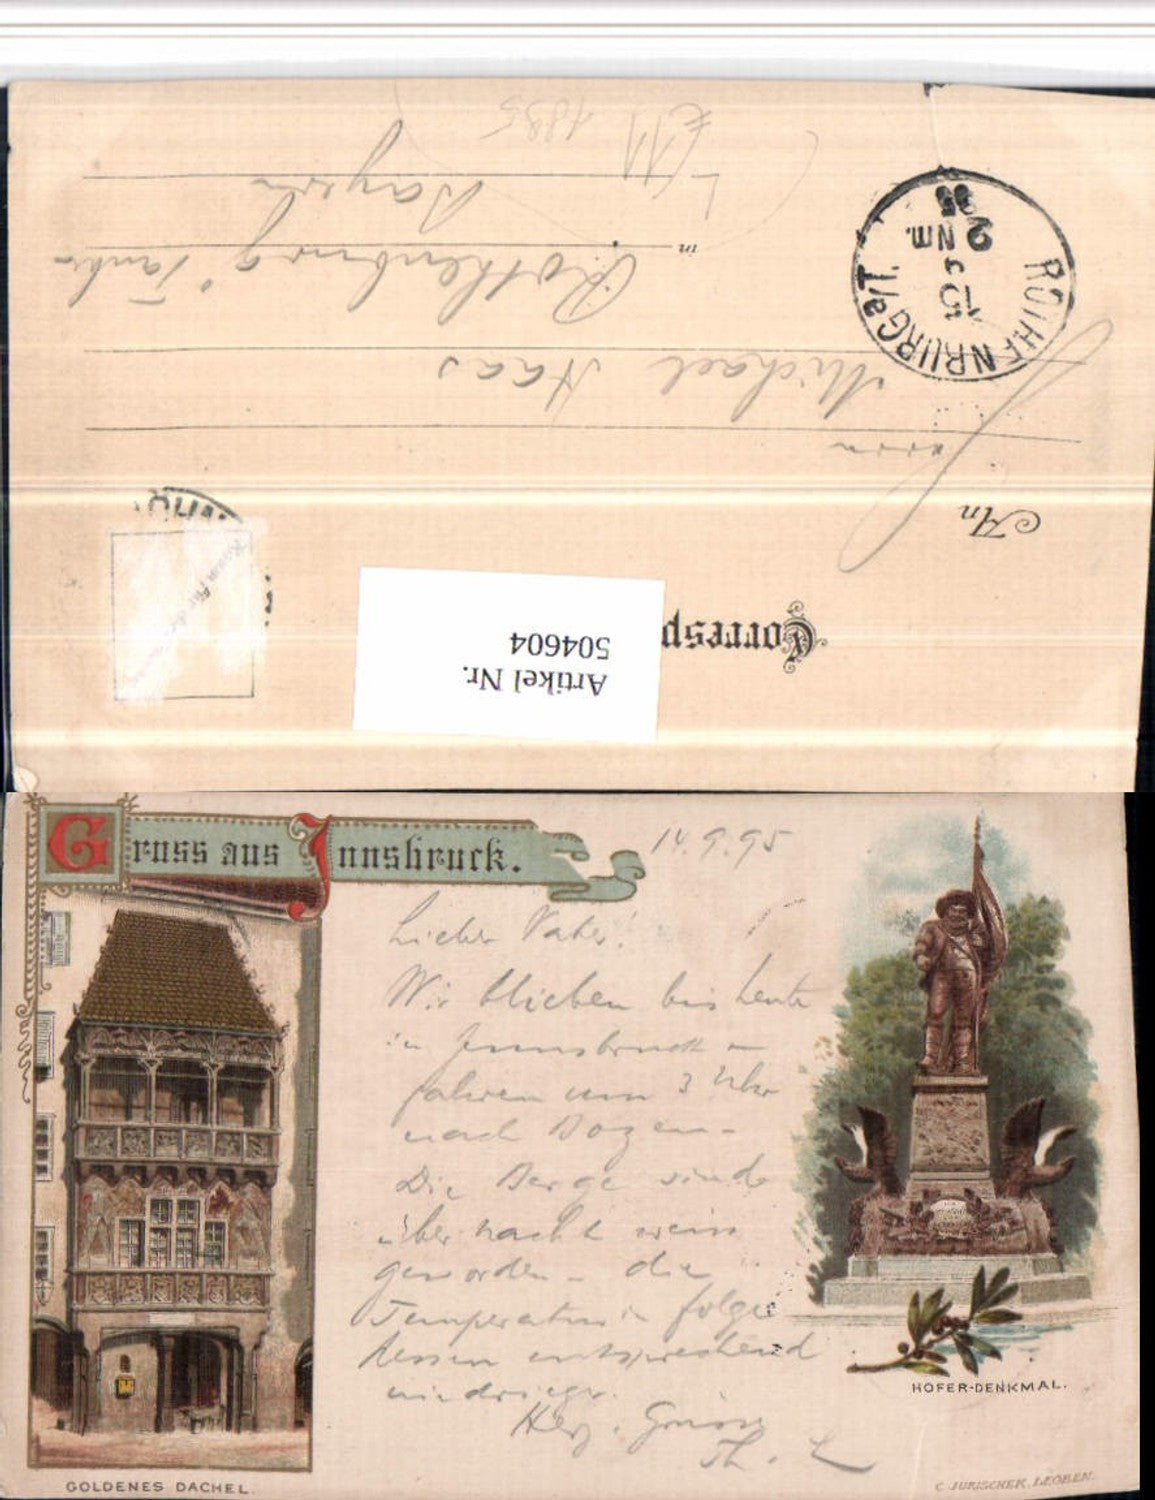 Correspo
Artikel Nr.
504604
An
Herrn
Michael Haas
in Rothenburg o Tauber
Bayern
ROTHENBURG a/T.
15 9
2 Nm.
95
£11 1895
Gruss aus Innsbruck.
14.9.95
Lieber Vater!
Wir blieben bis heute
in Innsbruck u
fahren um 3 Uhr
nach Bozen -
Die Berge sind
über nacht weiss
geworden - die
Temperatur in folge
dessen entsprechend
niedriger.
Herz. Grüsse
Th.
GOLDENES DACHEL.
HOFER-DENKMAL.
C. JURISCHEK, LEOBEN.